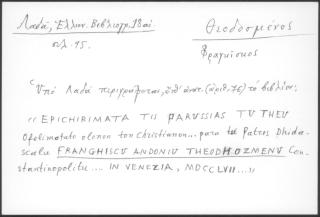 Λαδᾶ, Ἑλλην. Βιβλιογρ. 18 αἰ.
σελ. 95.
Θεοδοσμένος
Φραγκίσκος
Ὑπὸ Λαδᾶ περιγράφεται, (ἀριθ. 75) τὸ βιβλίον:
«EPICHIRIMATA TIS PARUSSIAS TU THEU
Ofelimotato olonon ton Christianon... para tu Patros Dhida-
scalu FRANGHISCU ANDONIU THEODHOZMENU Con-
stantinopolitu... IN VENEZIA, MDCCLVII...»